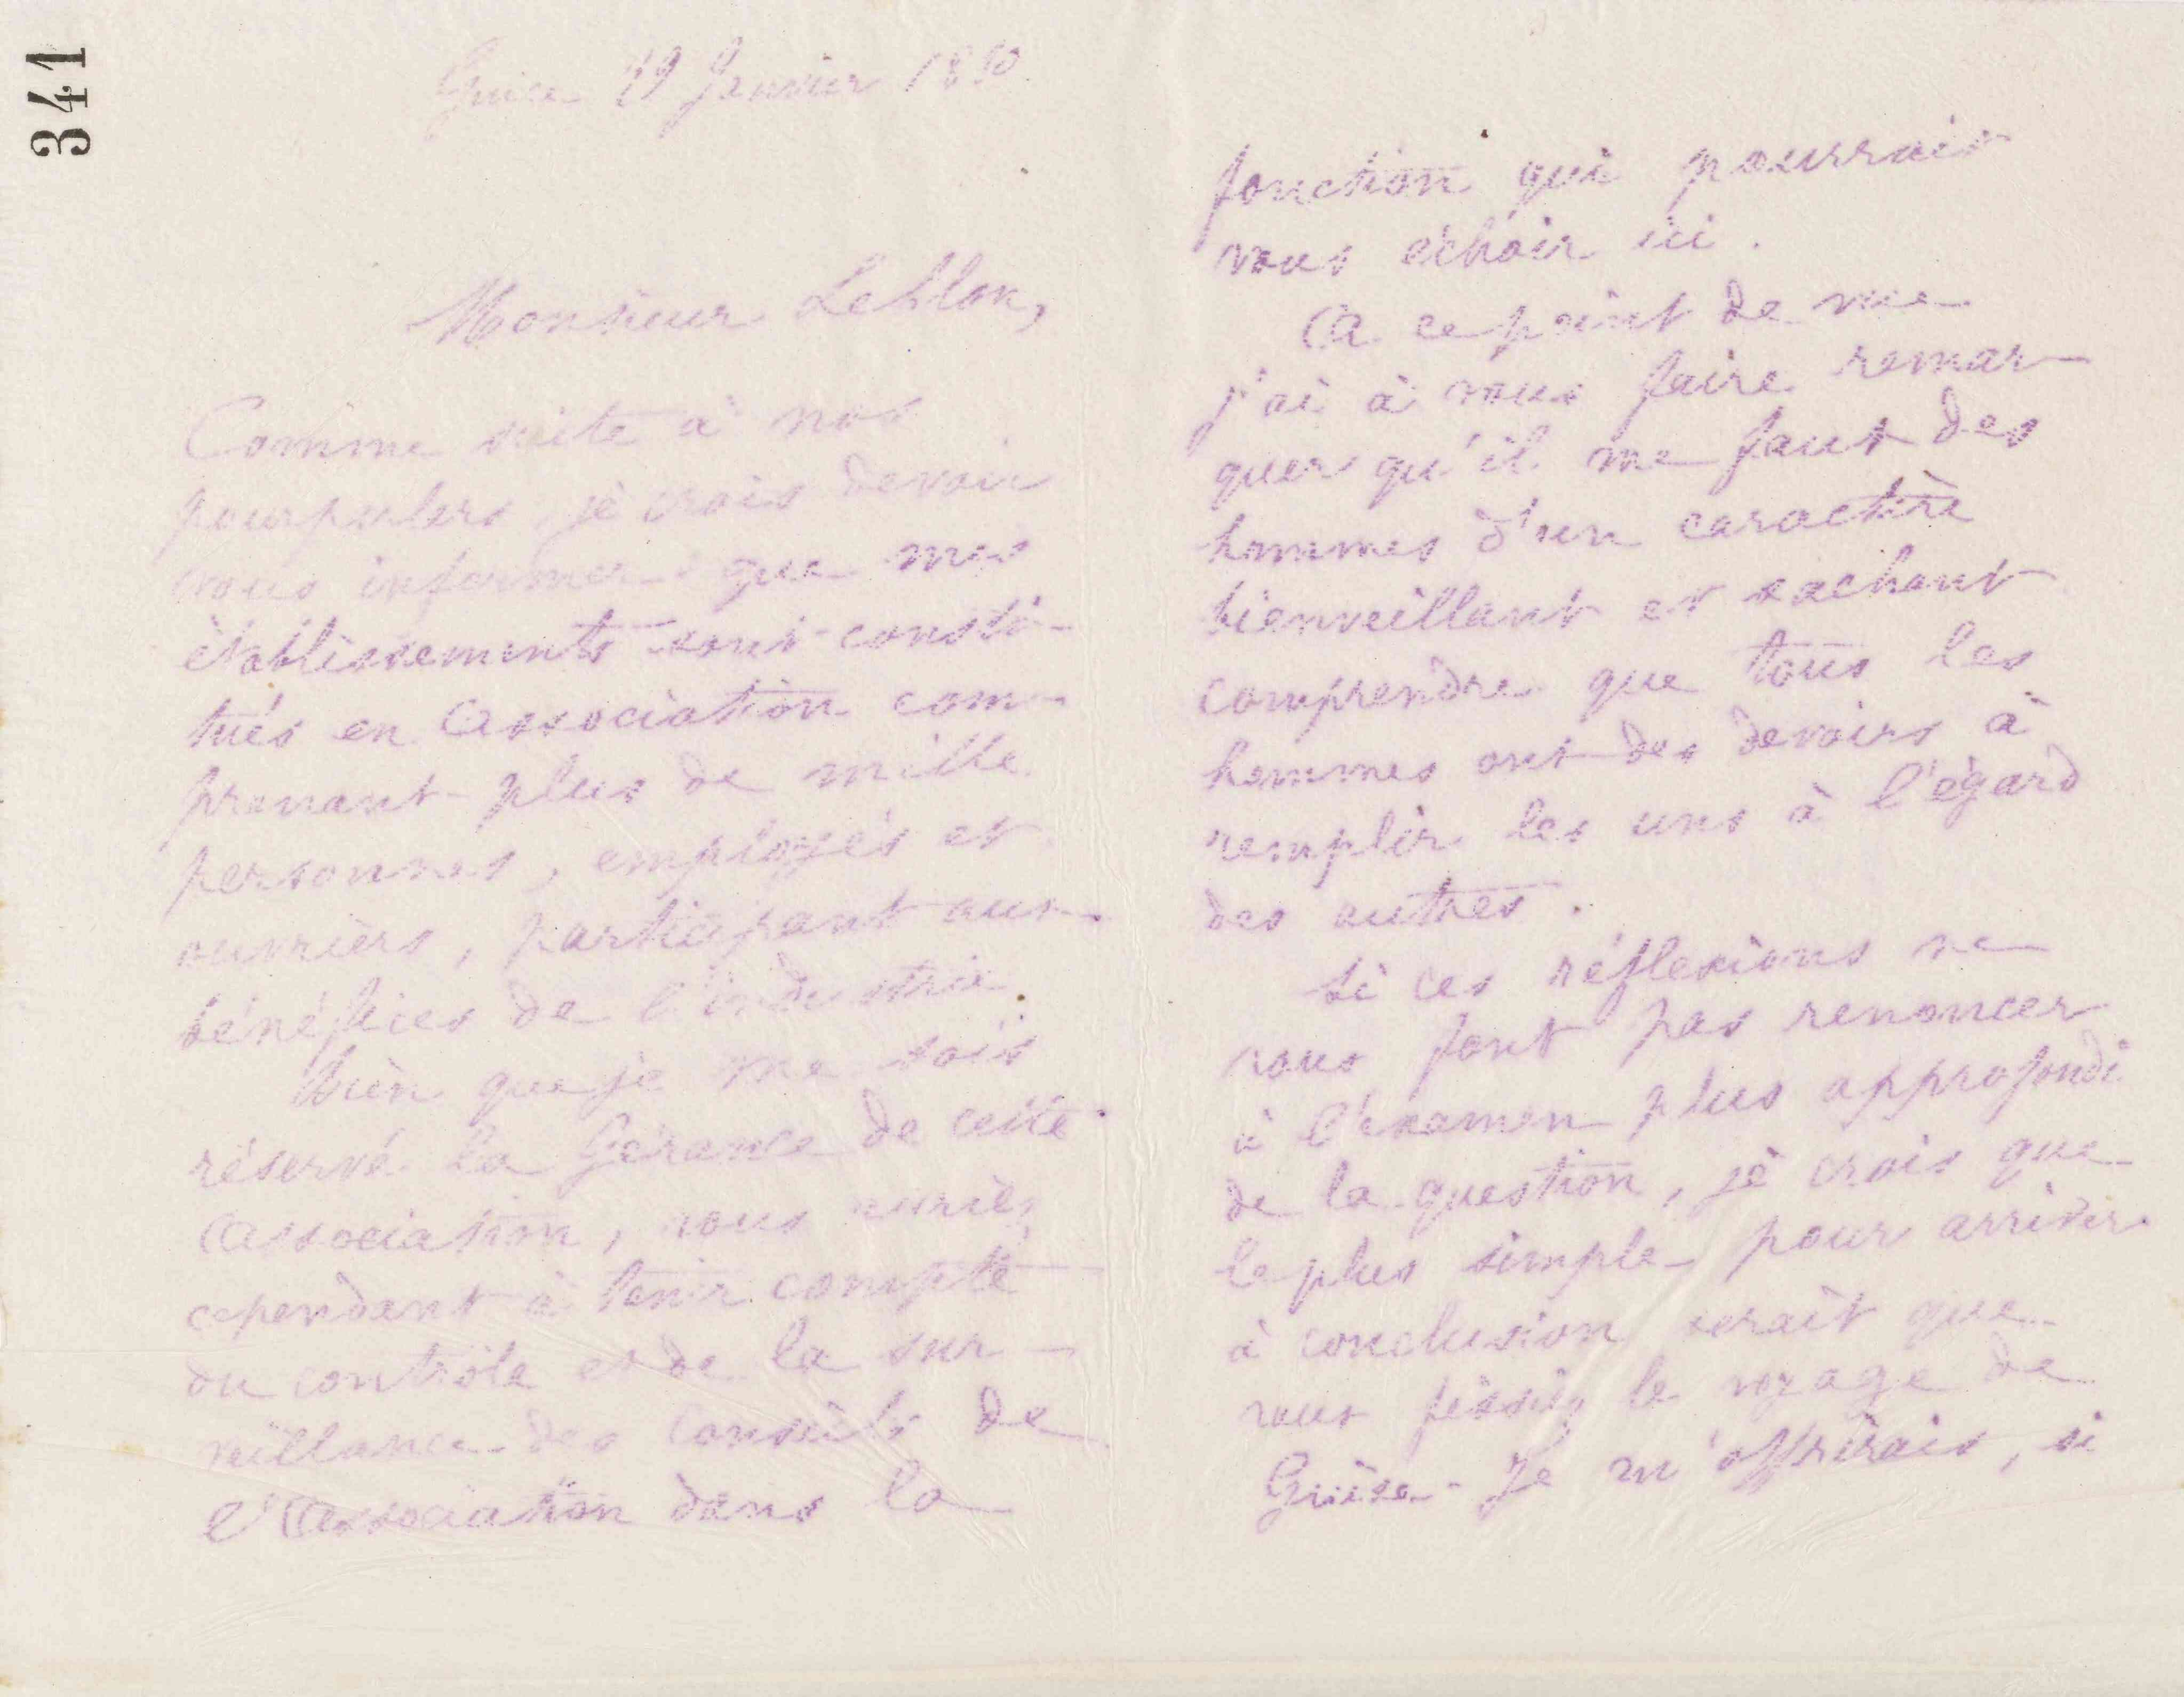 341
Guise 29 Janvier 18
Monsieur Leblon,
Comme suite à nos
pourpalers je crois devoir
vous informer que mes
établissements sont consti-
tués en Association com-
prenant plus de mille
personnes, employés et
ouvriers, participant aux
bénéfices de l'industrie.
Bien que je me sois
réservé la Gérance de cette
Association, vous auriez
cependant à tenir compte
du contrôle et de la sur-
veillance des Conseils de
l'Association dans la
fonction qui pourrait
vous échoir ici.
A ce point de vue
j'ai à vous faire remar-
quer qu'il me faut des
hommes d'un caractère
bienveillant et sachant
comprendre que tous les
hommes ont des devoirs à
remplir les uns à l'égard
des autres.
Si ces réflexions ne
vous font pas renoncer
à l'examen plus approfondi
de la question, je crois que
le plus simple pour arriver
à conclusion serait que
vous fissiez le voyage de
Guise. Je m'offrirais, si